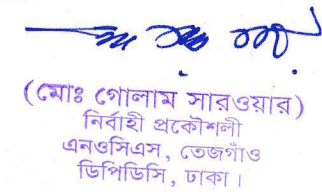 (মোঃ গোলাম সারওয়ার)
নির্বাহী প্রকৌশলী
এনওসিএস, তেজগাঁও
ডিপিডিসি, ঢাকা।